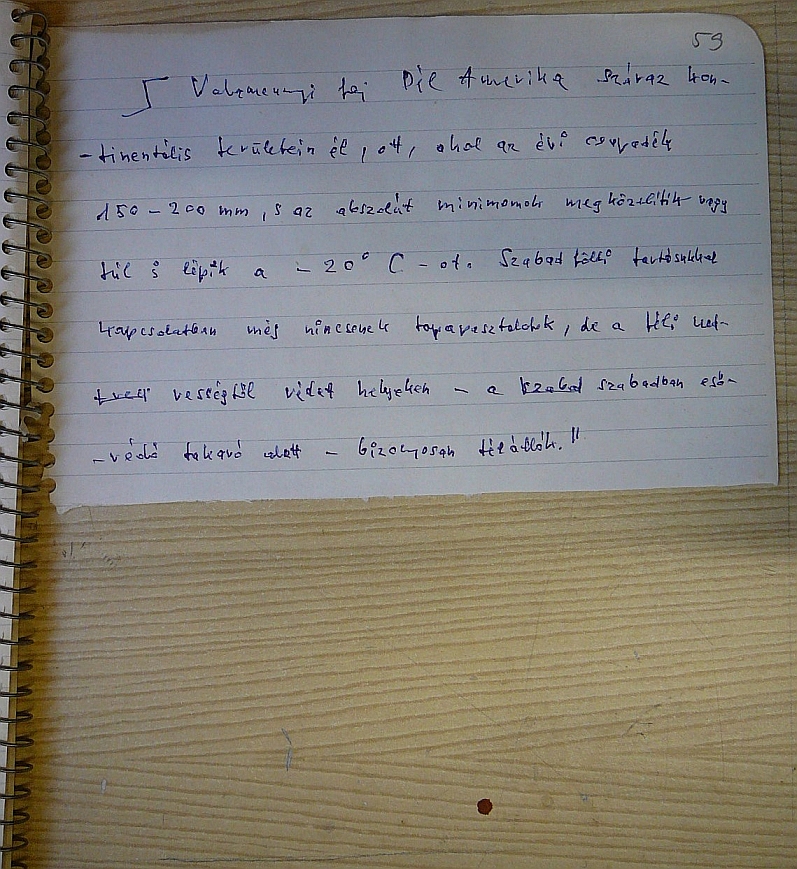 59
Valamennyi faj Dél Amerika száraz kon-
-tinentális területein él, ott, ahol az évi csapadék
150-200 mm, s az abszolút minimomok megközelítik vagy
túl is lépik a -20° C-ot. Szabadföldi tartásukkal
kapcsolatban még nincsenek tapasztalatok, de a téli ned-
vességtől védet helyeken - a szabad szabadban eső-
-védő takaró alatt - bizonyosan télállók."